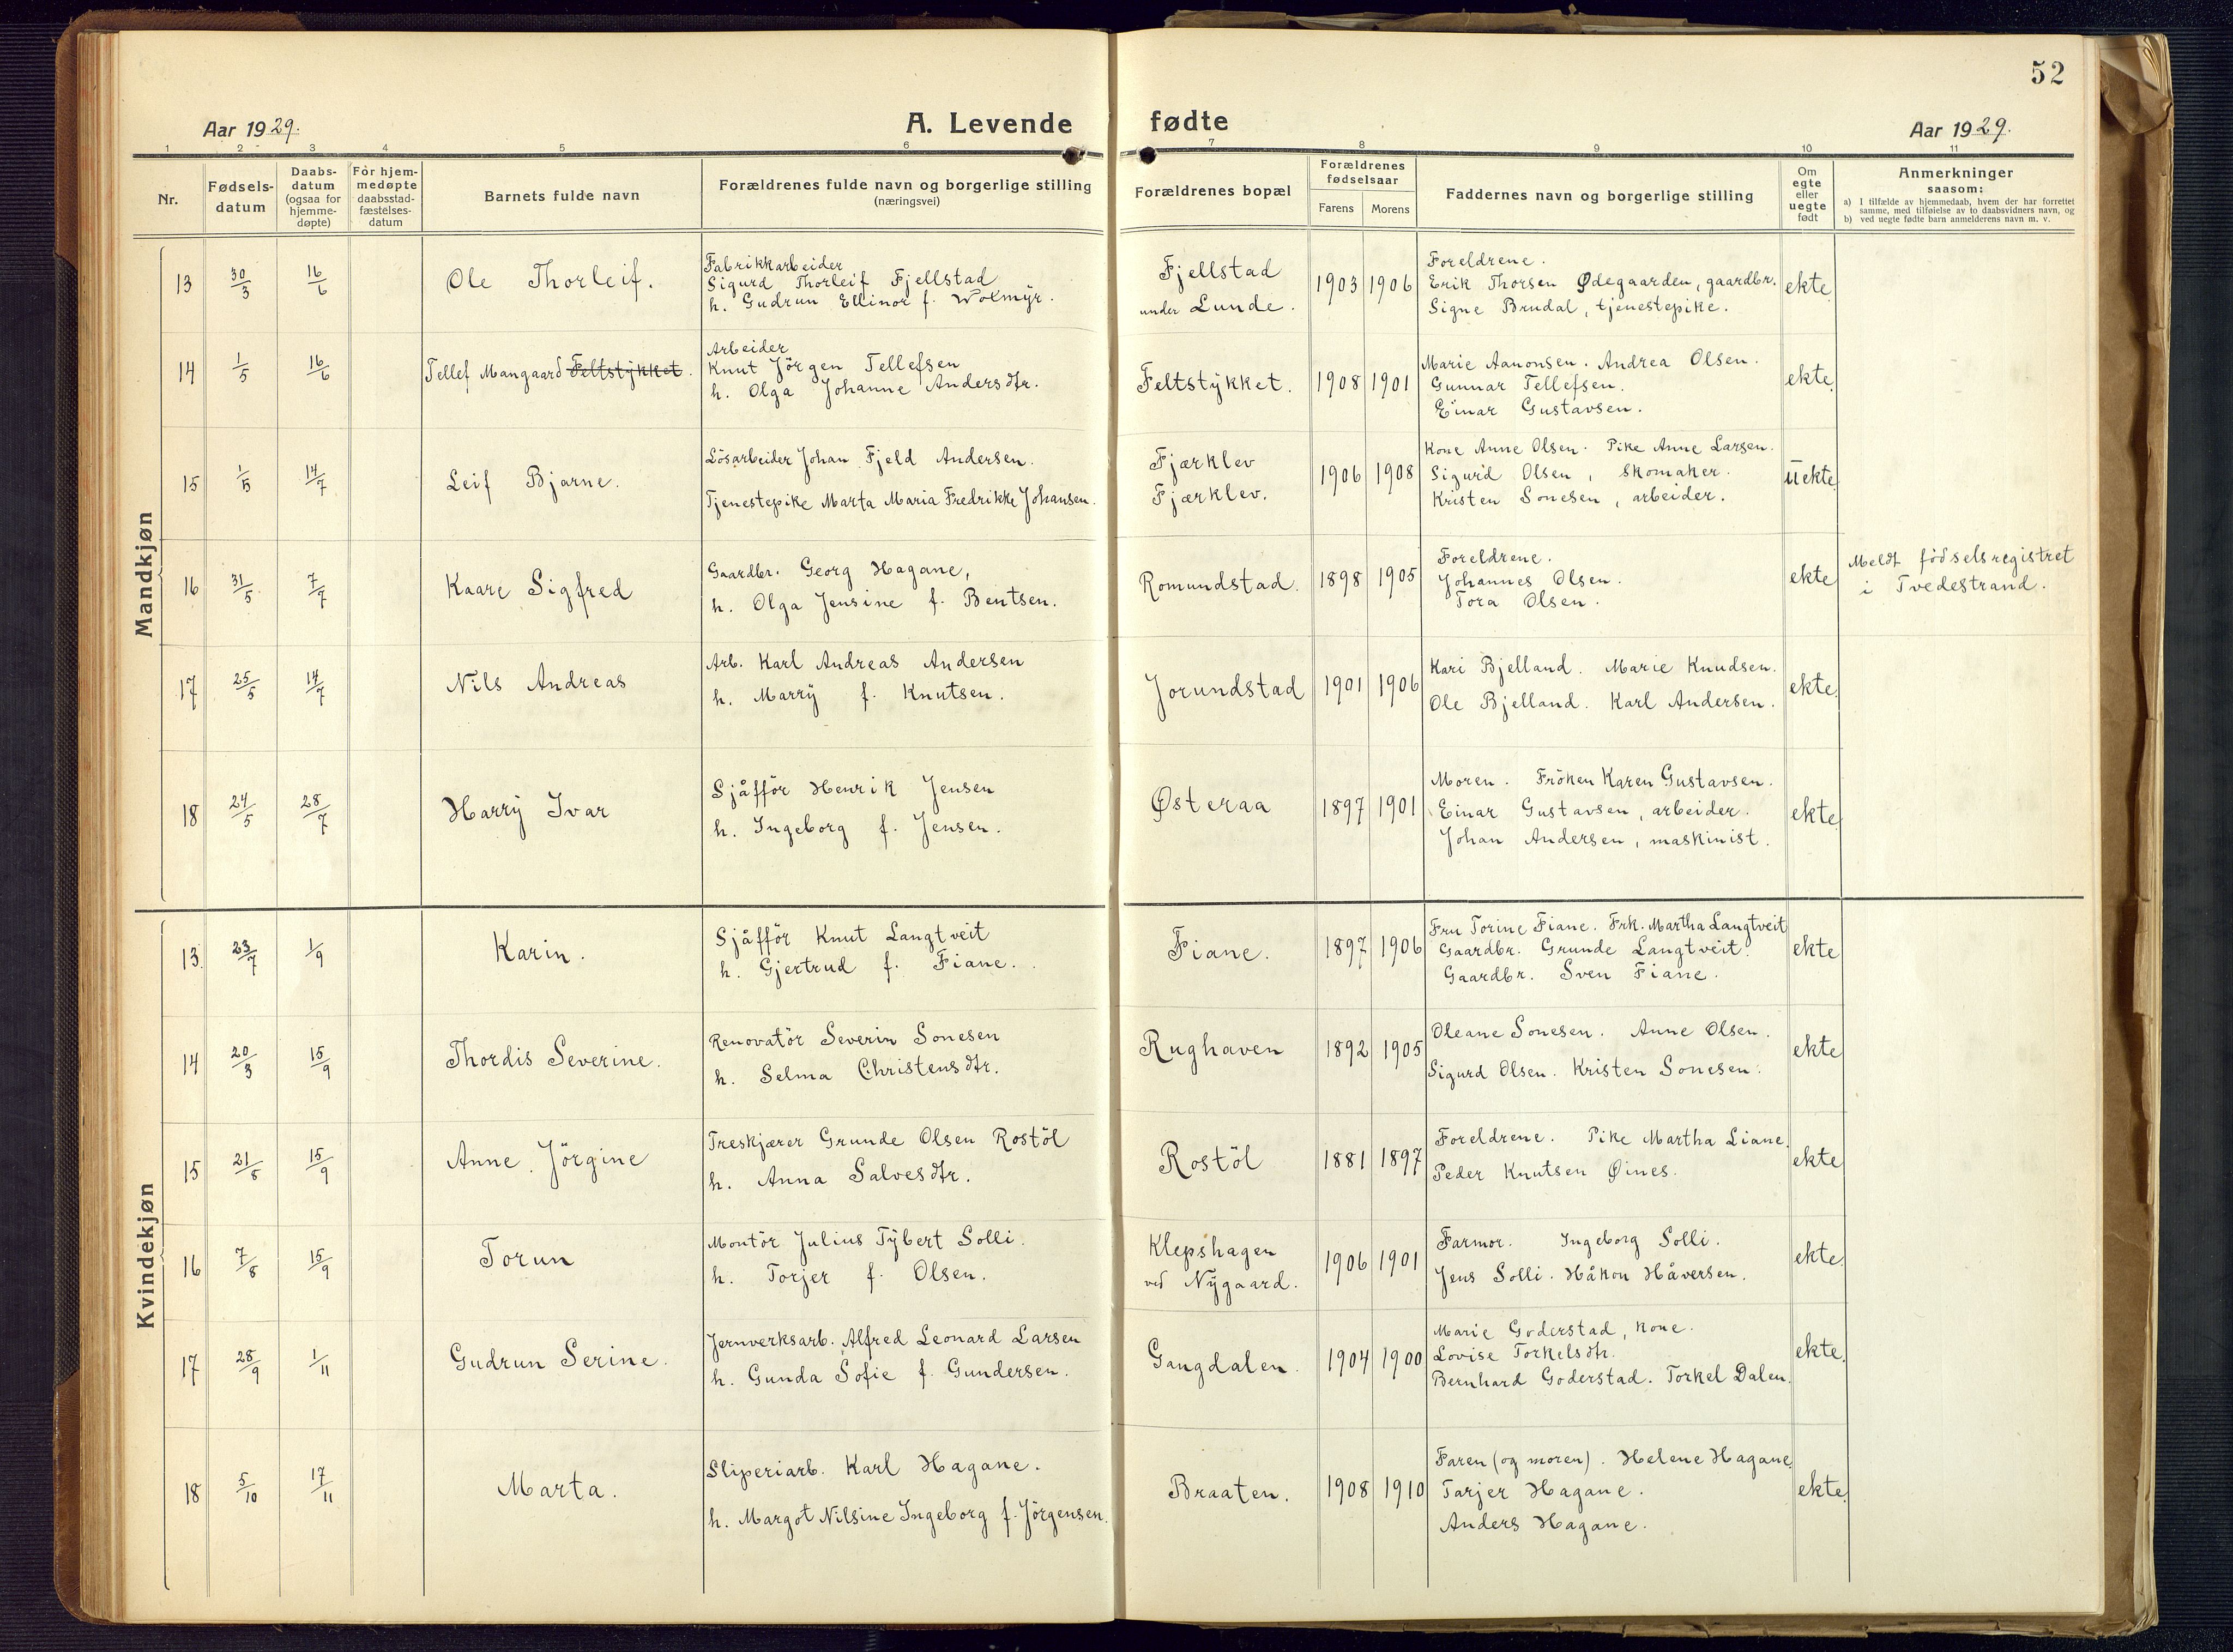 52
Aar 1929.
A. Levende fødte
Aar 1929.
1 2 3 4 5 6 7 8 9 10 11
Nr.
Fødsels-
datum
Daabs-
datum
(ogsaa for
hjemme-
døpte)
For hjem-
medøpte
daabsstad-
fæstelses-
datum
Barnets fulde navn
Forældrenes fulde navn og borgerlige stilling
(næringsvei)
Forældrenes bopæl
Forældrenes
fødselsaar
Farens Morens
Faddernes navn og borgerlige stilling
Om
egte
eller
uegte
født
Anmerkninger
saasom:
a) I tilfælde av hjemmedaab, hvem der har forrettet
samme, med tilføielse av to daabsvidners navn, og
b) ved uegte fødte barn anmelderens navn m. v.
Mandkjøn
13 30/3 16/6 Ole Thorleif.
Fabrikkarbeider
Sigurd Thorleif Fjellstad
h. Gudrun Ellinor f. Wolmÿr.
Fjellstad
under Lunde.
1903 1906
Foreldrene.
Erik Thorsen Ødegaarden, gaardbr.
Signe Brudal, tjenestepike.
ekte
14 1/5 16/6 Tellef Mangaard Feltstÿkket.
Arbeider
Knut Jörgen Tellefsen
h. Olga Johanne Andersdtr.
Feltstÿkket.
1908 1901
Marie Aanonsen. Andrea Olsen.
Gunnar Tellefsen.
Einar Gustavsen.
ekte.
15 1/5 14/7 Leif Bjarne.
Lösarbeider Johan Fjeld Andersen.
Tjenestepike Marta Maria Fredrikke Johansen.
Fjærklev
Fjærklev.
1906 1908
Kone Anne Olsen. Pike Anne Larsen.
Sigurd Olsen, skomaker.
Kristen Sonesen, arbeider.
uekte
16 31/5 7/7 Kaare Sigfred
Gaardbr. Georg Hagane,
h. Olga Jensine f. Bentsen.
Romundstad.
1898 1905
Foreldrene.
Johannes Olsen.
Tora Olsen.
ekte
Meldt födselsregistret
i Tvedestrand.
17 25/5 14/7 Nils Andreas
Arb. Karl Andreas Andersen
h. Marrÿ f. Knutsen.
Jorundstad
1901 1906
Kari Bjelland. Marie Knudsen.
Ole Bjelland. Karl Andersen.
ekte.
18 24/5 28/7 Harrÿ Ivar
Sjåfför Henrik Jensen
h. Ingeborg f. Jensen.
Østeraa
1897 1901
Moren. Fröken Karen Gustavsen.
Einar Gustavsen, arbeider.
Johan Andersen, maskinist.
ekte
Kvindekjøn
13. 23/7 1/9 Karin.
Sjåfför Knut Langtveit
h. Gjertrud f. Fiane.
Fiane.
1897 1906
Fru Torine Fiane. Frk. Martha Langtveit
Gaardbr. Grunde Langtveit.
Gaardbr. Sven Fiane.
ekte
14 20/3 15/9 Thordis Severine.
Renovatör Severin Sonesen
h. Selma Christensdtr.
Rughaven
1892 1905
Oleane Sonesen. Anne Olsen.
Sigurd Olsen. Kristen Sonesen.
ekte
15 21/8 15/9 Anne Jörgine
Treskjærer Grunde Olsen Rostöl
h. Anna Salvesdtr.
Rostöl
1881 1897
Foreldrene. Pike Martha Liane.
Peder Knutsen Øines.
ekte
16 7/8 15/9 Torun
Montör Julius Tÿbert Solli.
h. Torjer f. Olsen.
Klepshagen
ved Nÿgaard.
1906 1901
Farmor. Ingeborg Solli.
Jens Solli. Håkon Håversen.
ekte.
17 28/9 1/11 Gudrun Serine.
Jernverksarb. Alfred Leonard Larsen
h. Gunda Sofie f. Gundersen.
Gangdalen.
1904 1900
Marie Goderstad, kone.
Lovise Torkelsdtr.
Bernhard Goderstad. Torkel Dalen.
ekte.
18 5/10 17/11 Marta.
Sliperiarb. Karl Hagane.
h. Margot Nilsine Ingeborg f. Jörgensen.
Braaten.
1908 1910
Faren (og moren). Helene Hagane.
Tarjer Hagane.
Anders Hagane.
ekte.